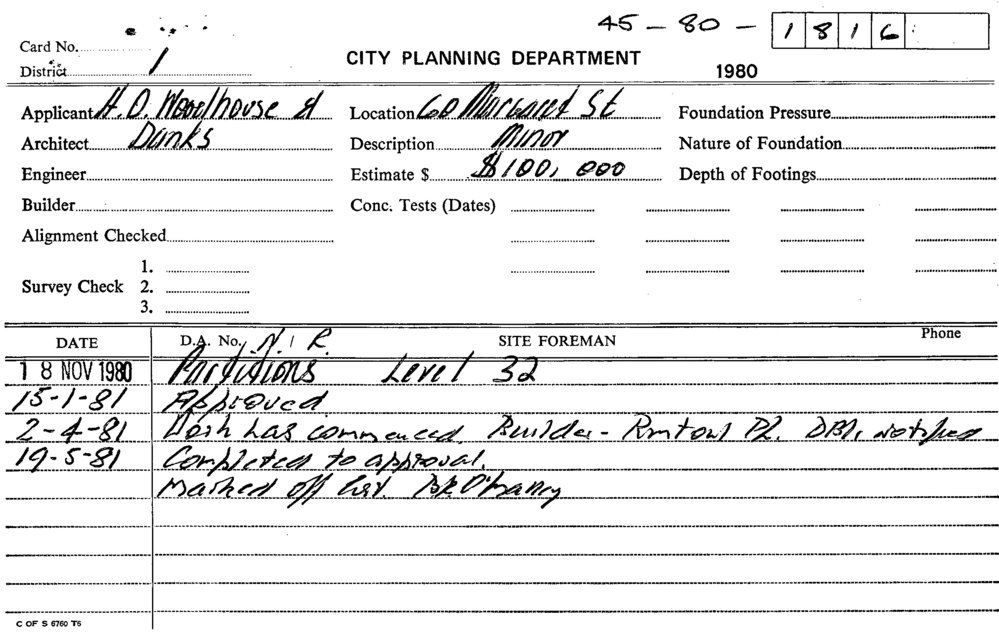 45-80-1816
Card No.
District 1
CITY PLANNING DEPARTMENT
1980
Applicant H. D. Woodhouse &
Location 60 Margaret St
Foundation Pressure
Architect Danks
Description Minor
Nature of Foundation
Engineer
Estimate $ $100,000
Depth of Footings
Builder
Conc. Tests (Dates)
Alignment Checked
Survey Check
1.
2.
3.
DATE
D.A. No. N.R.
SITE FOREMAN
Phone
18 NOV 1980 Partitions Level 32
15-1-81 Approved
2-4-81 Work has commenced. Builder - P/L. notified
19-5-81 Completed to approval.
Marked off list.
C OF S 6760 T6